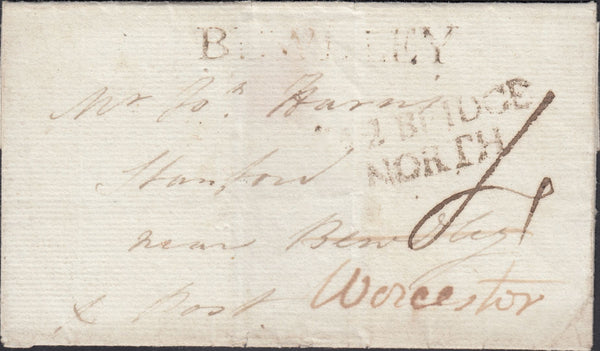 BEWDLEY
Mr Jos. Harris
BRIDGE
NORTH
Stanford
near Bewdley
& Post Worcester